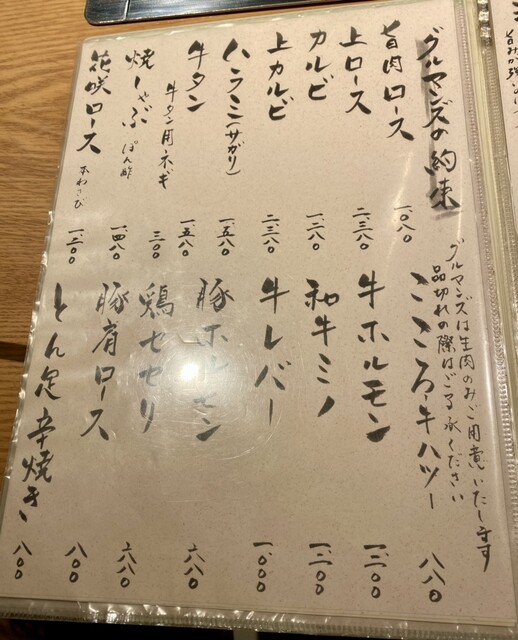 グルマンズの約束
旨肉ロース 一、〇八〇
上ロース 二、三八〇
カルビ 一、二八〇
上カルビ 二、三八〇
ハラミ(サガリ) 一、五八〇
牛タン 一、五八〇
牛タン用ネギ 三〇〇
焼しゃぶ ぽん酢 一、四八〇
花咲ロース 本わさび 一、二〇〇
グルマンズは生肉のみご用意いたします
品切れの際はご了承ください
こころ、牛ハツー 八八〇
牛ホルモン 一、二〇〇
和牛ミノ 一、二〇〇
牛レバー 一、〇〇〇
豚ホルモン 六八〇
鶏セセリ 六八〇
豚肩ロース 八〇〇
とん足辛焼き 八〇〇